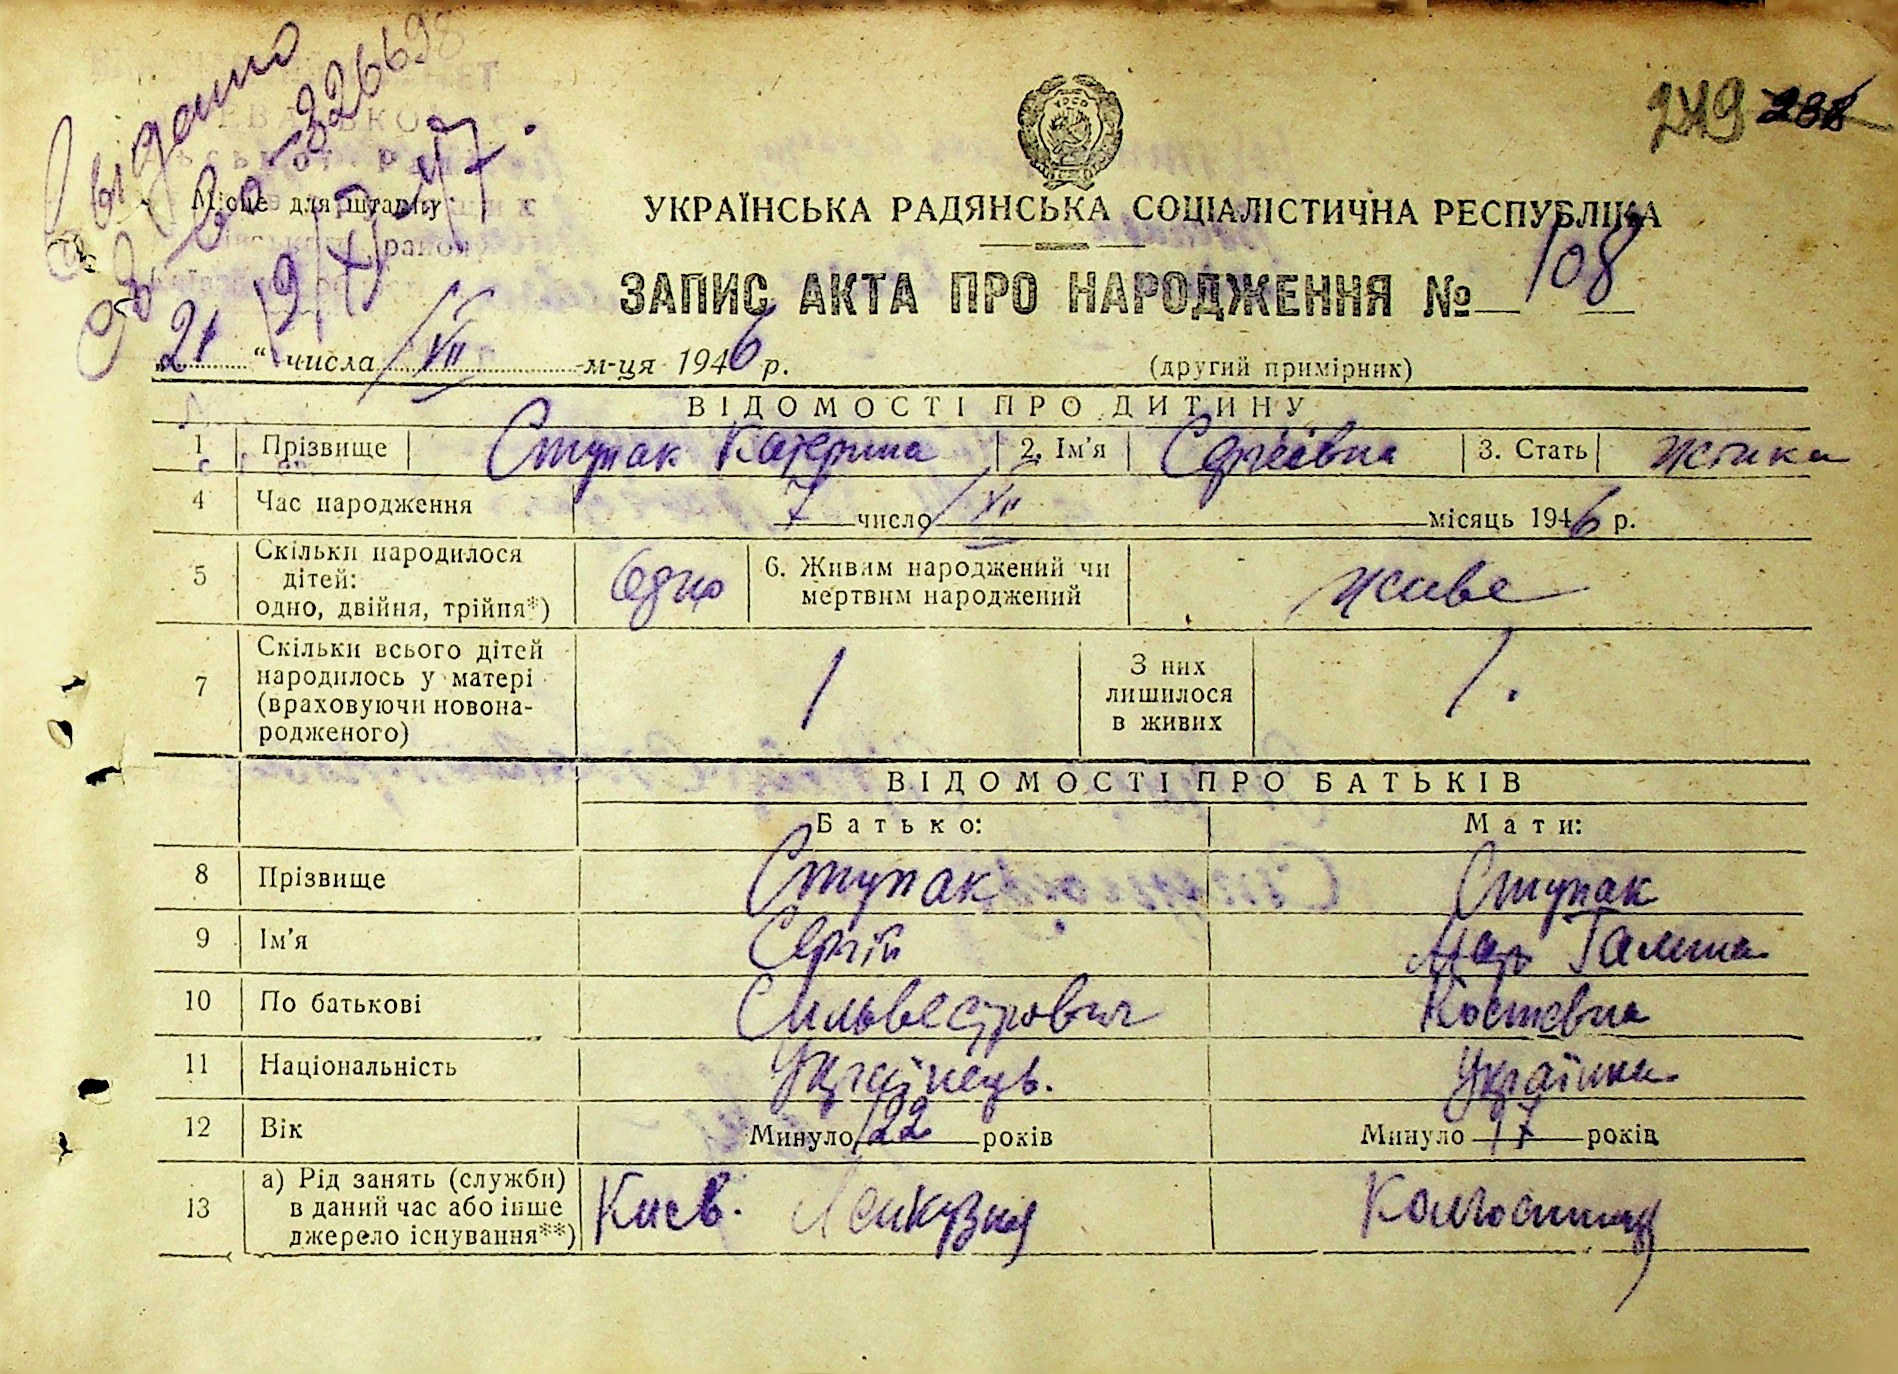 Выдано
226698
249 238
УРСР
Місце для штампу
19/XI 47.
УКРАЇНСЬКА РАДЯНСЬКА СОЦІАЛІСТИЧНА РЕСПУБЛІКА
ЗАПИС АКТА ПРО НАРОДЖЕННЯ № 108
„21“ числа VII м-ця 1946 р.
(другий примірник)
ВІДОМОСТІ ПРО ДИТИНУ
1 Прізвище Ступак Катерина 2. Ім'я Сергіївна 3. Стать жінка
4 Час народження 7 число VII місяць 1946 р.
5 Скільки народилося дітей: одно, двійня, трійня*) одно 6. Живим народжений чи мертвим народжений живе
7 Скільки всього дітей народилось у матері (враховуючи новонародженого) 1 З них лишилося в живих 1.
ВІДОМОСТІ ПРО БАТЬКІВ
Батько: Мати:
8 Прізвище Ступак Ступак
9 Ім'я Сергій Галина
10 По батькові Сильвестрович Костевна
11 Національність Українець. Українка
12 Вік Минуло 22 років Минуло 17 років
13 а) Рід занять (служби) в даний час або інше джерело існування**) Киев.